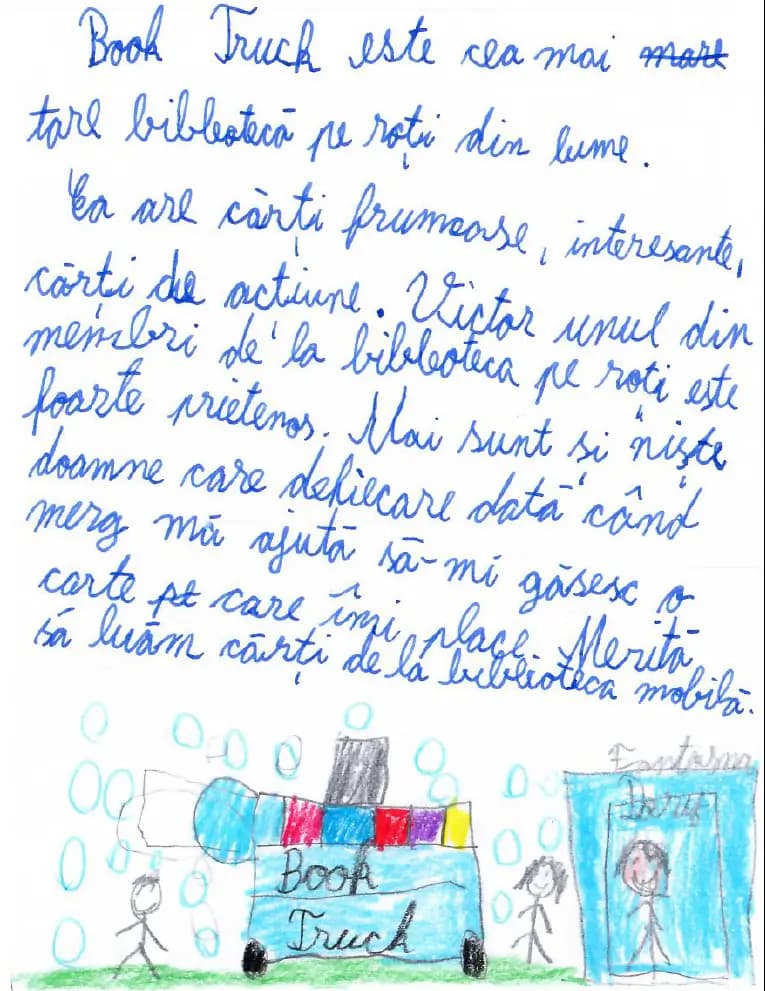 Book Truck este cea mai mare
tare bibleotecă pe roți din lume.
Ea are cărți frumoase, interesante,
cărți de actiune. Victor unul din
membri de la bibleoteca pe roți este
foarte prietenos. Mai sunt si niște
doamne care defiecare dată când
merg mă ajută să-mi găsesc o
carte pe care îmi place. Merită
să luăm cărți de la biblioteca mobilă.
Fantoma
Book
Truck